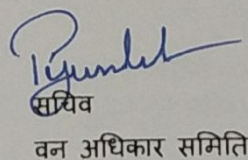 सचिव
वन अधिकार समिति